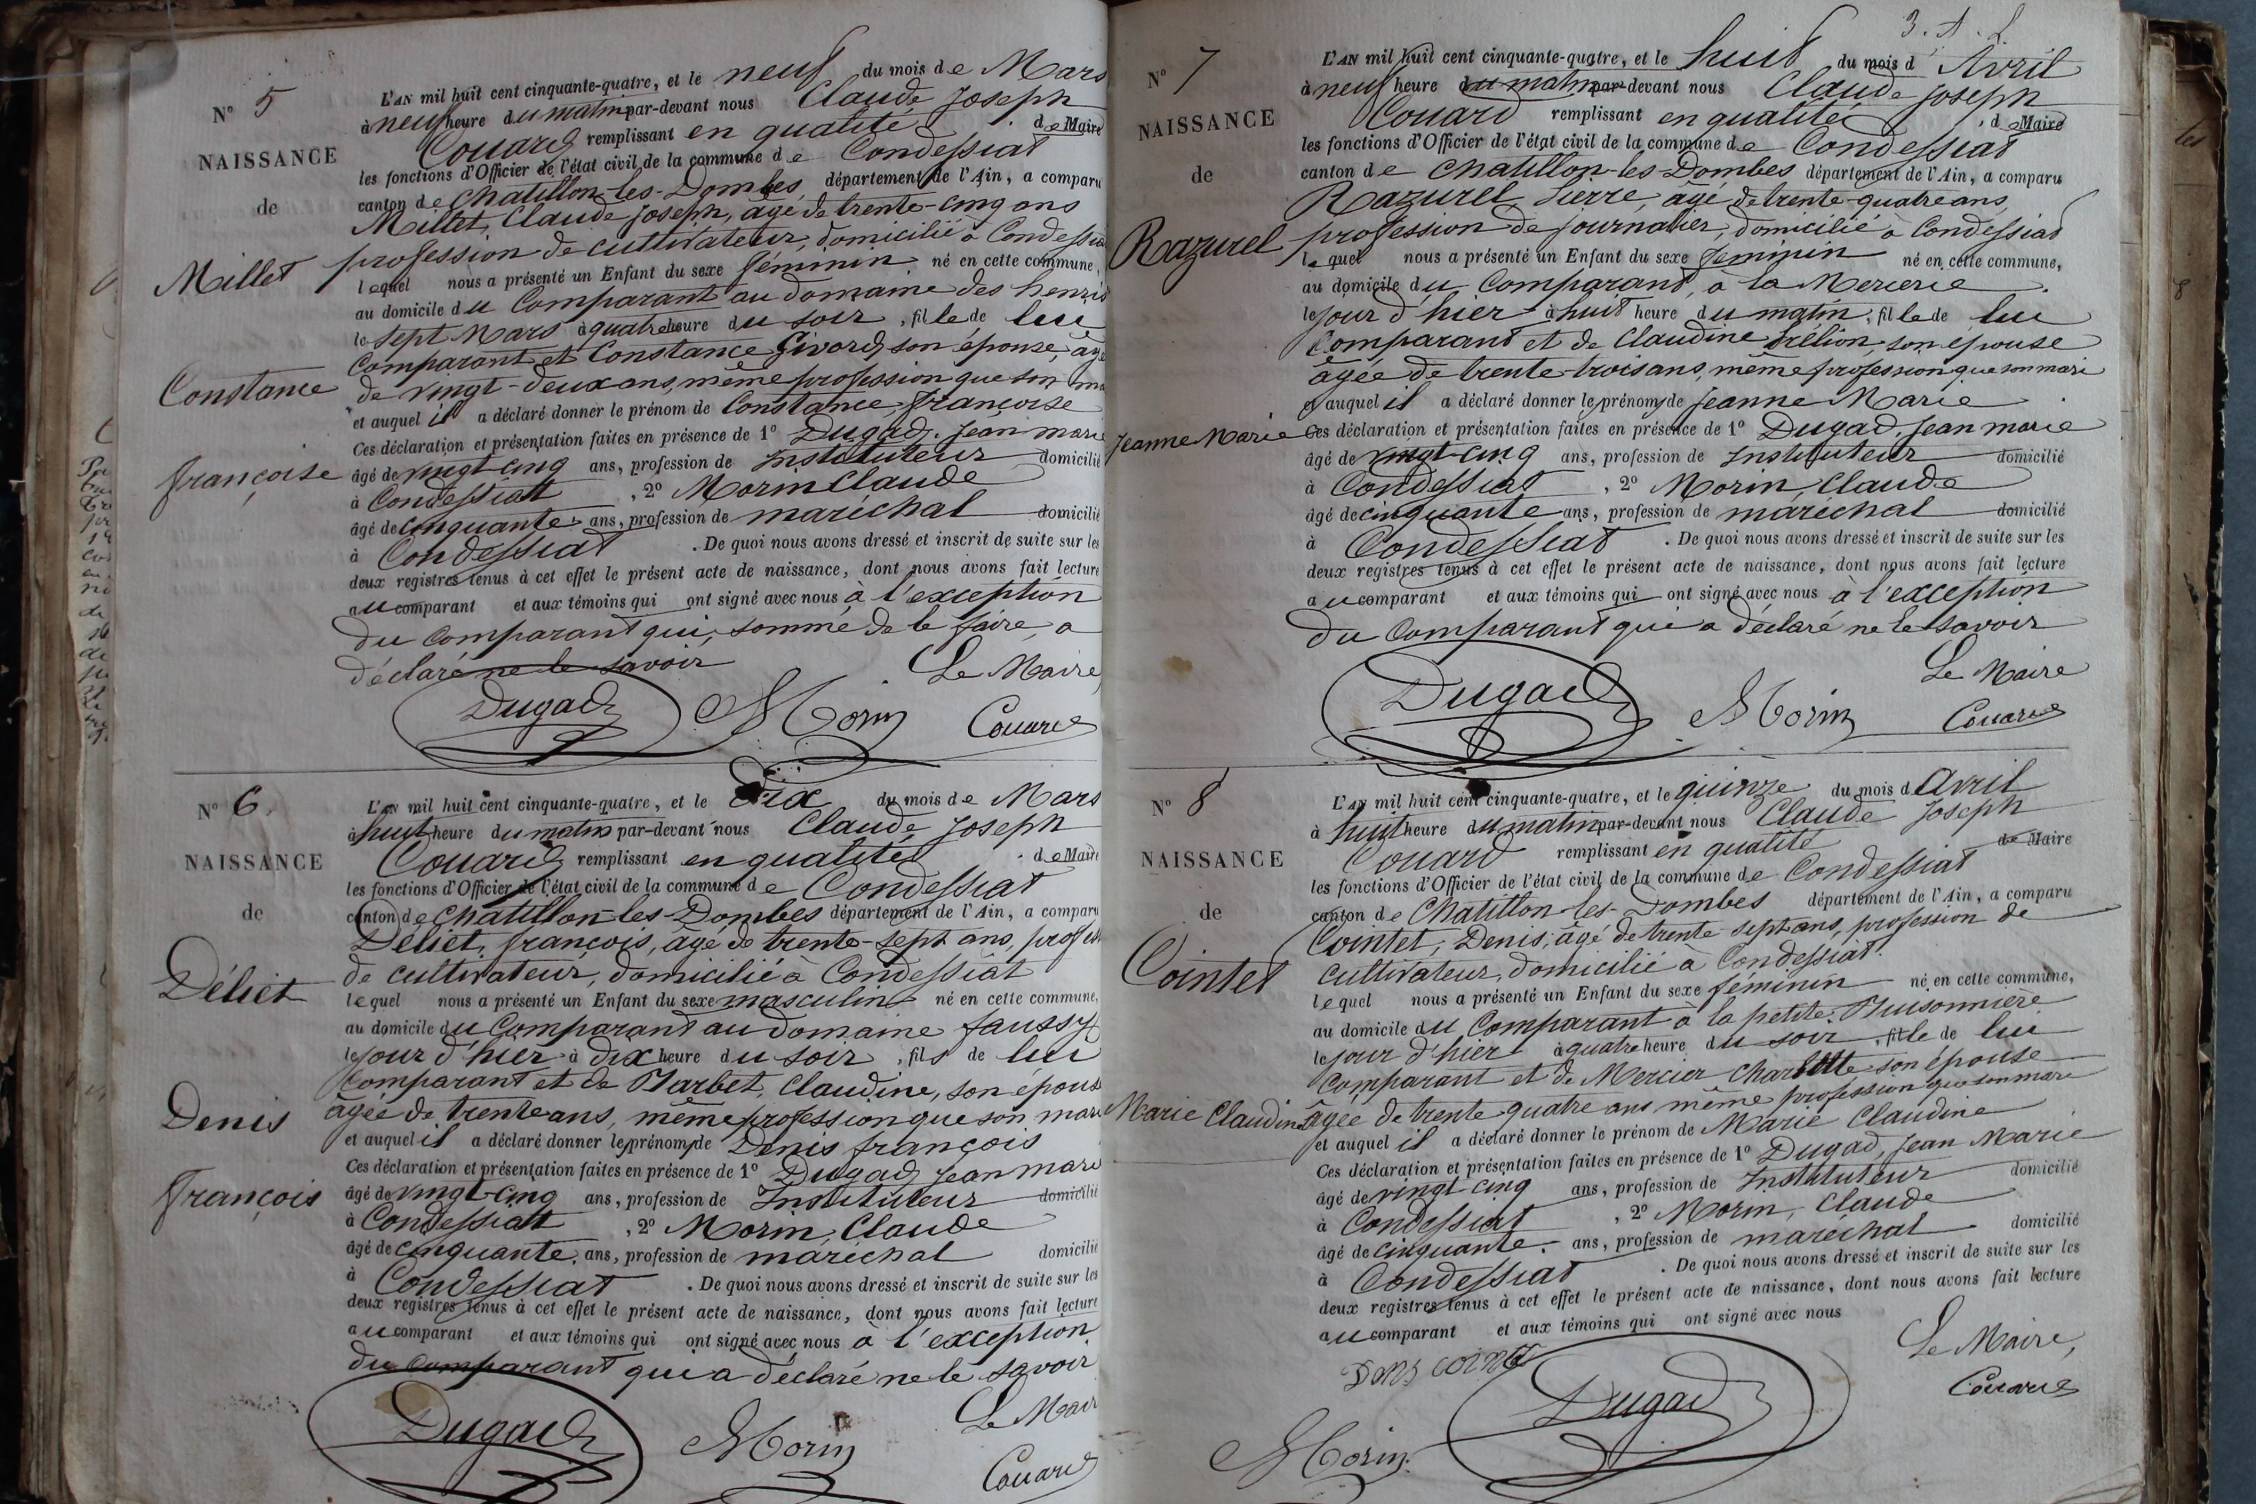 N° 5
NAISSANCE
de
Millet
Constance
françoise
L'AN mil huit cent cinquante-quatre, et le neuf du mois de Mars
à neuf heure du matin par-devant nous Claude Joseph
Couard remplissant en qualité de Maire
les fonctions d'Officier de l'état civil de la commune de Condessiat
canton de Chatillon-les-Dombes, département de l'Ain, a comparu
Millet, Claude Joseph, âgé de trente-cinq ans
profession de cultivateur, domicilié à Condessiat
lequel nous a présenté un Enfant du sexe féminin né en cette commune,
au domicile du Comparant au domaine des henris
le sept Mars à quatre heure du soir, fille de lui
Comparant et Constance Givord, son épouse, âgé
de vingt-deux ans, même profession que son ma
et auquel il a déclaré donner le prénom de Constance, françoise
Ces déclaration et présentation faites en présence de 1° Dugad, Jean marie
âgé de vingt-cinq ans, profession de Instituteur domicilié
à Condessiat, 2° Morin Claude
âgé de cinquante ans, profession de maréchal domicilié
à Condessiat. De quoi nous avons dressé et inscrit de suite sur les
deux registres tenus à cet effet le présent acte de naissance, dont nous avons fait lecture
au comparant et aux témoins qui ont signé avec nous à l'exception
du comparant qui, sommé de le faire, a
déclaré ne le savoir Le Maire,
Dugad Morin Couard
N° 6.
NAISSANCE
de
Déliet
Denis
françois
L'AN mil huit cent cinquante-quatre, et le dix du mois de Mars
à huit heure du matin par-devant nous Claude Joseph
Couard remplissant en qualité de Maire
les fonctions d'Officier de l'état civil de la commune de Condessiat
canton de Chatillon-les-Dombes département de l'Ain, a comparu
Déliet, françois, âgé de trente-sept ans, profess
de cultivateur, domicilié à Condessiat
lequel nous a présenté un Enfant du sexe masculin né en cette commune,
au domicile du Comparant au domaine faussy
le jour d'hier à dix heure du soir, fils de lui
Comparant et de Barbet, Claudine, son épous
âgée de trente ans, même profession que son mari
et auquel il a déclaré donner le prénom de Denis françois
Ces déclaration et présentation faites en présence de 1° Dugad, Jean marie
âgé de vingt-cinq ans, profession de Instituteur domicilié
à Condessiat, 2° Morin, Claude
âgé de cinquante. ans, profession de maréchal domicilié
à Condessiat. De quoi nous avons dressé et inscrit de suite sur les
deux registres tenus à cet effet le présent acte de naissance, dont nous avons fait lecture
au comparant et aux témoins qui ont signé avec nous à l'exception
du comparant qui a déclaré ne le savoir
Le Mair
Dugad Morin Couard
3. A. L
N° 7
NAISSANCE
de
Razurel
Jeanne Marie
L'AN mil huit cent cinquante-quatre, et le huit du mois d Avril
à neuf heure du matin par-devant nous Claude Joseph
Couard remplissant en qualité de Maire
les fonctions d'Officier de l'état civil de la commune de Condessiat
canton de Chatillon-les-Dombes département de l'Ain, a comparu
Razurel, Pierre, âgé de trente-quatre ans,
profession de journalier, domicilié à Condessiat
lequel nous a présenté un Enfant du sexe féminin né en cette commune,
au domicile du Comparant, à la Mercrie
le jour d'hier à huit heure du matin, fille de lui
Comparant et de Claudine son épouse
âgée de trente-trois ans, même profession que son mari
et auquel il a déclaré donner le prénom de Jeanne Marie
Ces déclaration et présentation faites en présence de 1° Dugad, Jean marie
âgé de vingt-cinq ans, profession de Instituteur domicilié
à Condessiat, 2° Morin, Claude
âgé de cinquante ans, profession de maréchal domicilié
à Condessiat. De quoi nous avons dressé et inscrit de suite sur les
deux registres tenus à cet effet le présent acte de naissance, dont nous avons fait lecture
au comparant et aux témoins qui ont signé avec nous à l'exception
du Comparant qui a déclaré ne le savoir
Le Maire
Dugad Morin Couard
N° 8
NAISSANCE
de
Cointet
Marie Claudine
L'AN mil huit cent cinquante-quatre, et le quinze du mois d Avril
à huit heure du matin par-devant nous Claude Joseph
Couard remplissant en qualité de Maire
les fonctions d'Officier de l'état civil de la commune de Condessiat
canton de Chatillon-les-Dombes département de l'Ain, a comparu
Cointet, Denis, âgé de trente sept ans, profession de
cultivateur, domicilié à Condessiat.
lequel nous a présenté un Enfant du sexe féminin né en cette commune,
au domicile du Comparant à la petite
le jour d'hier à quatre heure du soir, fille de lui
Comparant et de Mercier Charlotte son épouse
âgée de trente quatre ans même profession que son mari
et auquel il a déclaré donner le prénom de Marie Claudine
Ces déclaration et présentation faites en présence de 1° Dugad, Jean Marie
âgé de vingt-cinq ans, profession de Instituteur domicilié
à Condessiat, 2° Morin, Claude
âgé de cinquante. ans, profession de maréchal domicilié
à Condessiat. De quoi nous avons dressé et inscrit de suite sur les
deux registres tenus à cet effet le présent acte de naissance, dont nous avons fait lecture
au comparant et aux témoins qui ont signé avec nous
Le Maire,
Denis cointet
Dugad Couard
Morin